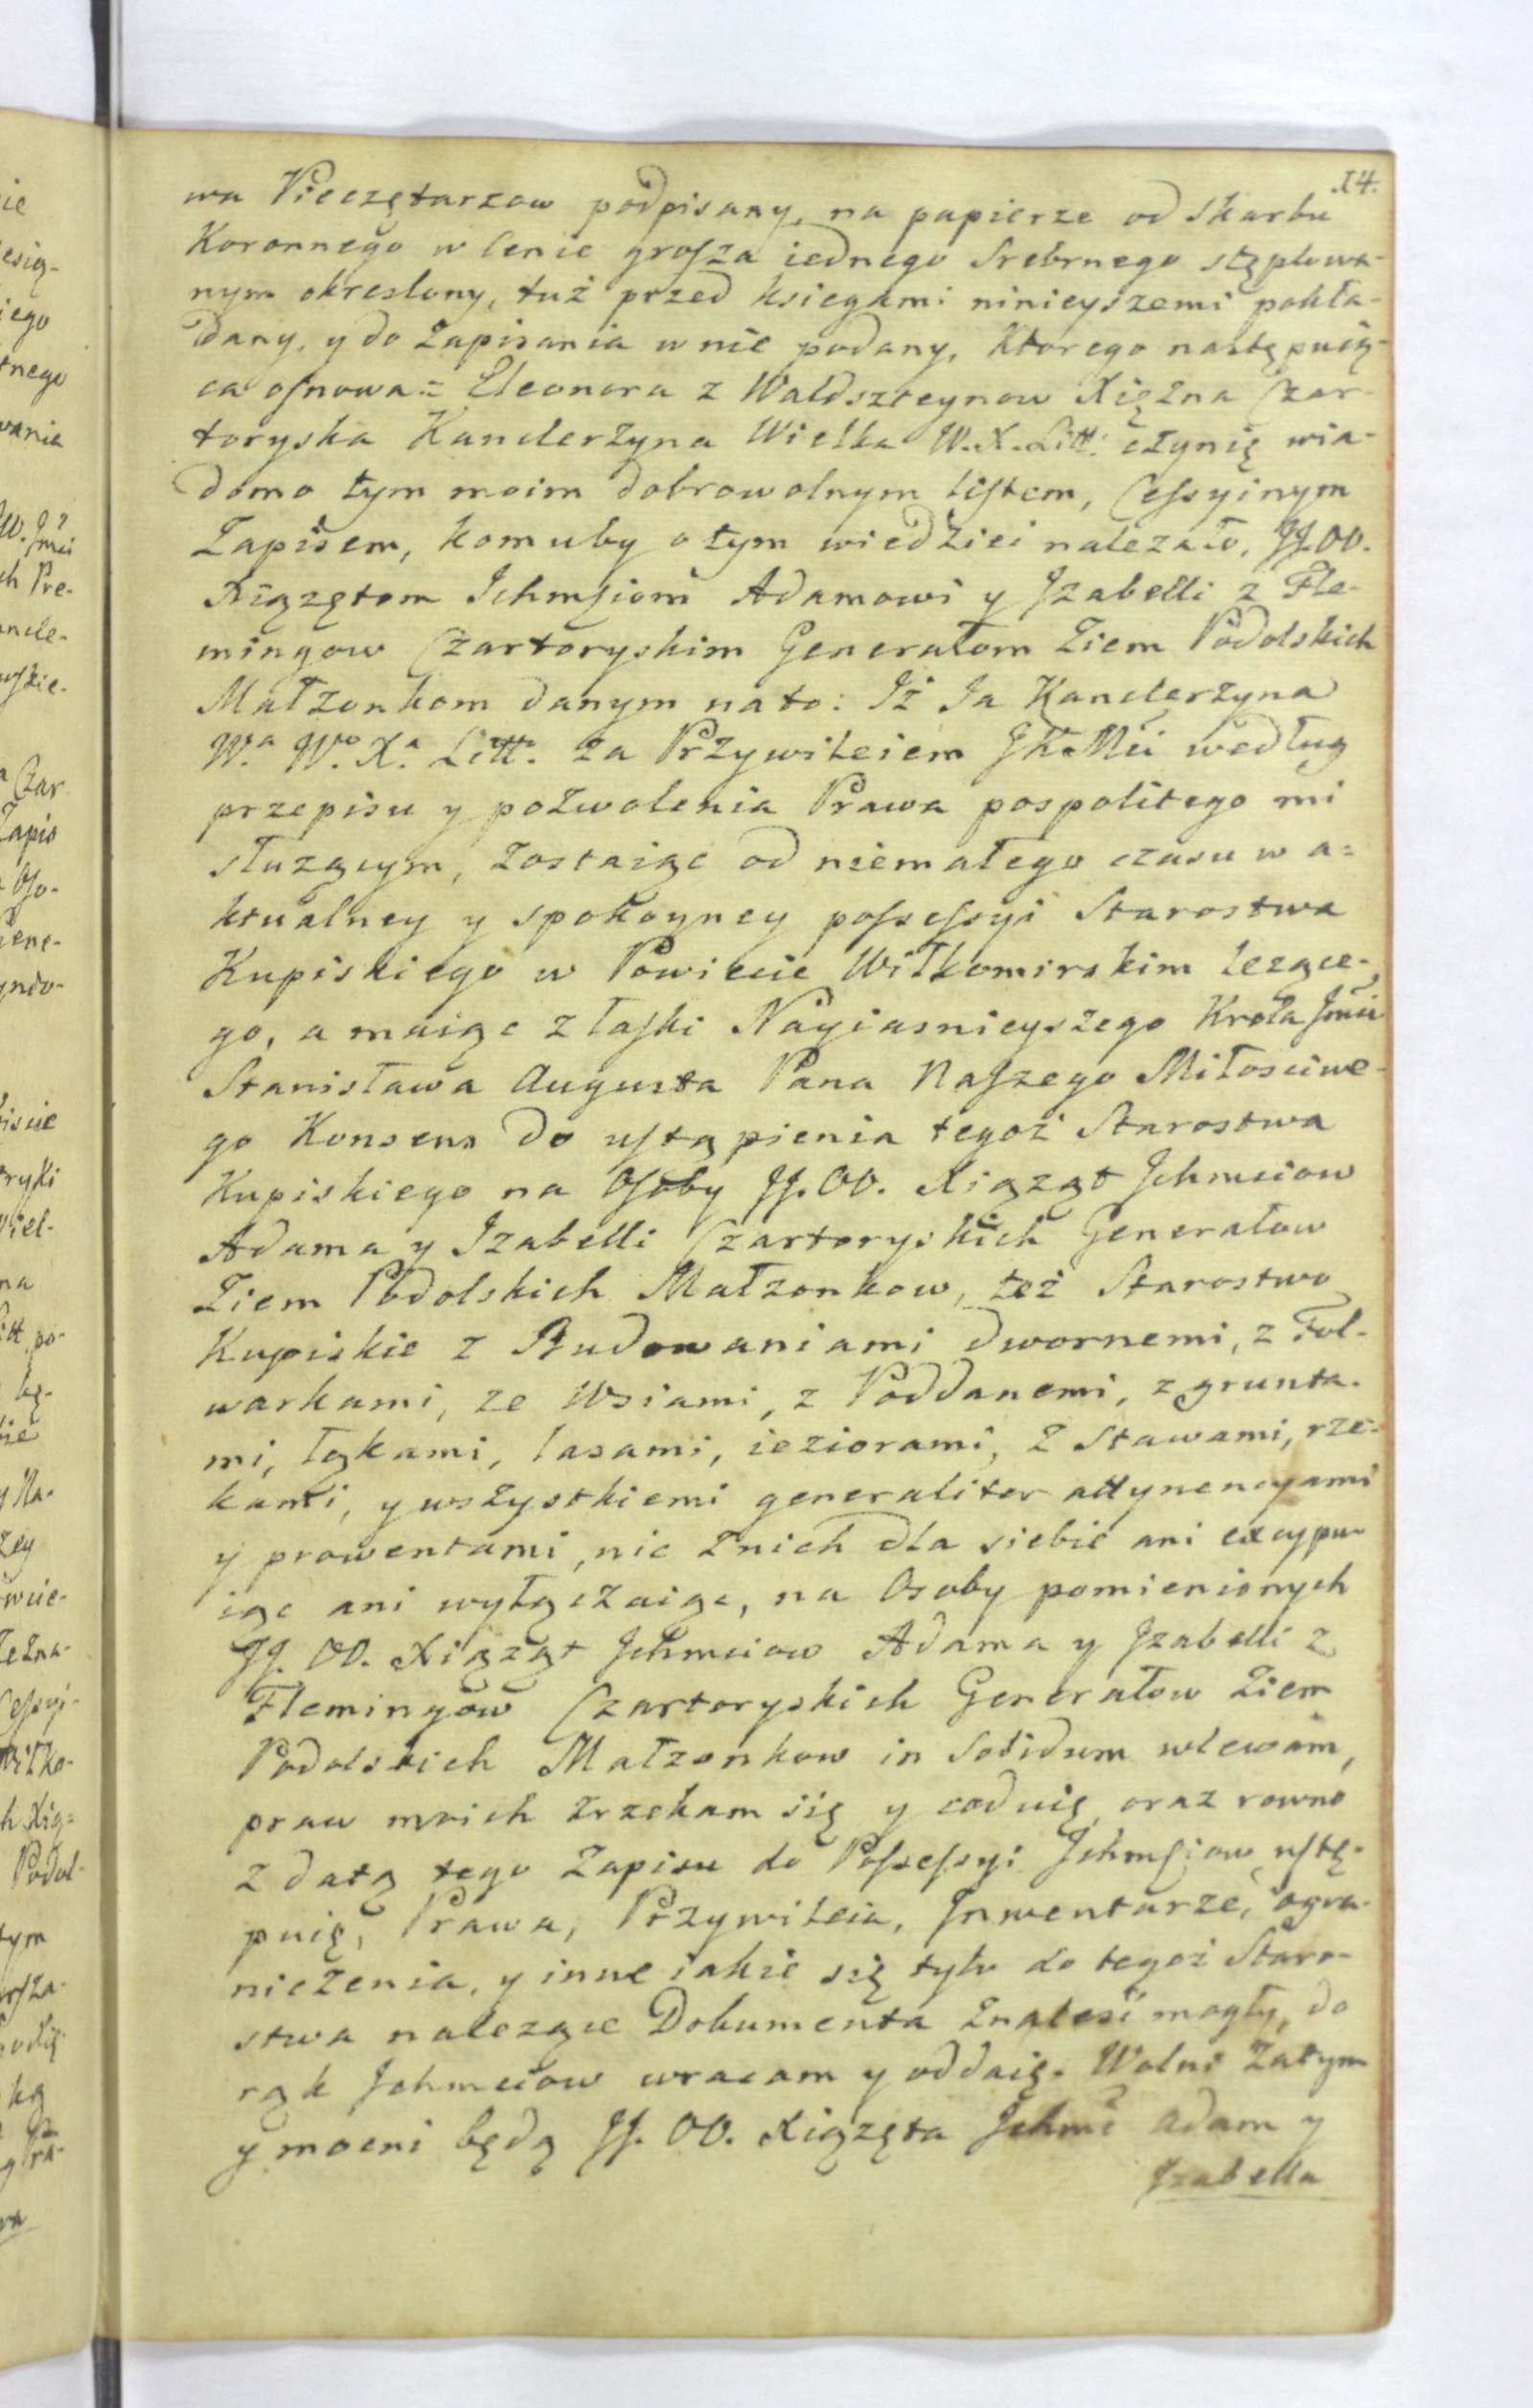 14.
wa Pieczętarzow podpisany, na papierze od Skarbu
Koronnego w Cenie groſza iednego Srebrnego stęplowa-
nym okreslony, tuż przed księgami ninieyszemi pokła-
dany, y do Zapisania w nie podany, Ktorego następuią-
ca oſnowa = Eleonora z Waldszteynow Xiężna Czar-
toryska Kanclerzyna Wielka W. X. Litt: czynię wia-
domo tym moim dobrowolnym liſtem, Ceſsyinym
Zapisem, komuby o tym wiedziec nalezało, JJ.OO.
Xiązętom Ichmſiom Adamowi y Jzabelli z Fle-
mingow Czartoryskim Generałom Ziem Podolskich
Małzonkom danym na to: Iż Ja Kanclerzyna
W.a W.o X.a Litt: za Przywileiem JKMci według
przepisu y pozwolenia Prawa pospolitego mi
słuzącym, zostaiąc od niemałego czasu w a=
ktualney y spokoyney poſseſsyi Starostwa
Kupiskiego w Powiecie Wiłkomirskim lezące-
go, a maiąc z łaſki Nayiasnieyszego Krola Jmci
Stanisława Augusta Pana Naſzego Miłosciwe-
go Konsens do uſtąpienia tegoż Starostwa
Kupiskiego na Oſoby JJ. OO. Xiąząt Jchmciow
Adama y Izabelli Czartoryskich Generałow
Ziem Podolskich Małzonkow, też Starostwo
Kupiskie z Budowaniami dwornemi, z Fol-
warkami, ze Wsiami, z Poddanemi, z grunta-
mi, łąkami, lasami, ieziorami, z Stawami, rze-
kami, y wszystkiemi generaliter attynencyami
y prowentami, nic z nich dla siebie ani excypu-
iąc ani wyłączaiąc, na Osoby pomienionych
JJ. OO. Xiąząt Jchmciow Adama y Jzabelli z
Flemingów Czartoryskich Generałow Ziem
Podolskich Małzonkow in Solidum wlewam,
praw moich zrzekam się y oraz rowno
z datą tego Zapisu do Poſseſsyi Jchmſiow uſtę-
puię, Prawa, Przywileia, Jnwentarze, ogra-
niczenia, y inne iakie się tylo do tegoż Staro-
stwa nalezące Dokumenta znalesć mogły, do
rąk Jchmciow wracam y oddaię. Wolni Zatym
y mocni będą JJ. OO. Xiązęta Jchmć Adam y
Jzabella